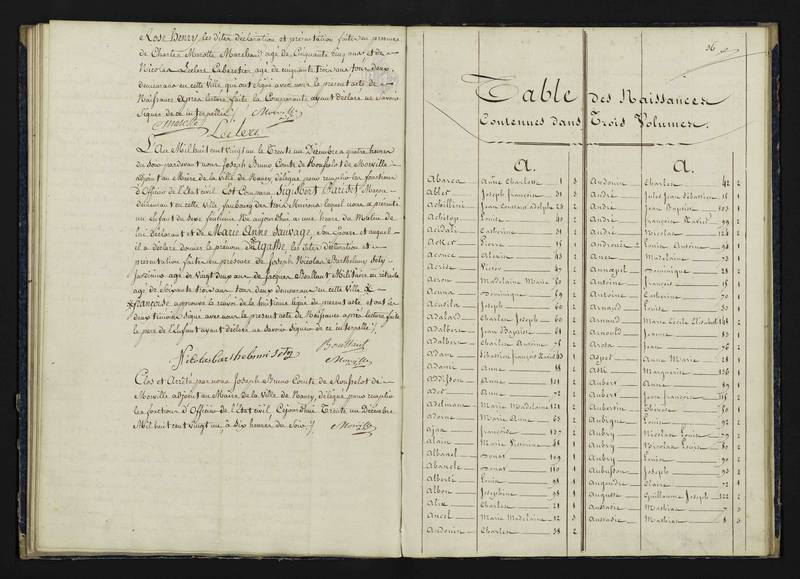 Rose Henry, les dites déclaration et présentation faites en présence
de Charles Marotte Marchand, agé de Cinquante cinq ans et de
Nicolas Leclere Cabaretier agé de cinquante trois ans tous deux
demeurans en cette Ville, qui ont signé avec nous le present acte de
Naissance après lecture faite la Comparante ayant déclaré ne savoir
Signer de ce interpellée /. Morville
Marotte
Leclere
L'An Mil huit cent vingt un le Trente un Décembre à quatre heures
du soir pardevant nous Joseph Bruno Comte de Rousselot de Morville
adjoint au Maire de la Ville de Nancy, délégué pour remplir les fonctions
d'Officier de l'Etat civil Est Comparu Sigisbert Parisot Maçon
demeurant en cette Ville faubourg des trois Maisons lequel nous a présenté
un Enfant du sexe féminin Né aujourd'hui à une heure du Matin de
lui déclarant et de Marie Anne Sauvage, son Epouse et auquel
il a déclaré donner le prénom d'Agathe les dites déclaration et
présentation faites en présence de Joseph Nicolas Barthelemy Soly
Jardinier agé de Vingt deux ans de Jacques Bouillard Militaire en retraite
agé de Soixante trois ans tous deux demeurans en cette Ville
françoise approuvé le renvoi de la huitième ligne du present acte et ont les
deux témoins signé avec nous le present acte de Naissance après lecture faite
le pere de l'Enfant ayant déclaré ne savoir Signer de ce interpellé /.
Bouillard
Nicolas barthelemi soly
Morville
Clos et Arrêté par nous Joseph Bruno Comte de Rousselot de
Morville adjoint au Maire de la Ville de Nancy, délégué pour remplir
les fonctions d'Officier de l'Etat civil, Cejourd'hui Trente un Décembre
Mil huit cent vingt un, à Six heures du Soir /. Morville
Table des Naissances
Contenues dans Trois Volumes.
A. A.
Abarca Anne Charlotte 1 3
Ablet Joseph françois 31 3
Achillini
Achitop Louise 40 2
Acidali Catherine 31
Acker Pierre 15 1
Aconce Alexis 43
Acrise Victor 49
Acron Madelaine Marie 50
Acuna Dominique 59
Acusila Joseph 60 2
Adalard Charles Joseph 60 2
Adalbert Jean Baptiste 61 2
Adalbert Charles Antoine 75
Adam Sébastien françois
Adami Anne 88
Addisson Anne 101
Ader Anne 72
Adelmann Marie Madelaine 121
Adorne Marie Anne 63
Ajax françoise
Alain Marie Victoire 48 1
Albanel Donat 109 1
Abancle Donat 110 1
Alberti Louis 98
Albon Joséphine 98
Alix Charles 21 1
Ancel Marie Madelaine 32
Andouin Charles 38 2
Andouin Charles 42 2
André Jules Jean Sébastien 15 1
André Jean Baptiste 103
André françoise
André Nicolas 124 2
Louis Antoine 94
Anes Madelaine 73
Annapel Dominique 28
Antoine françois 15
Antoine Catherine 70
Arnaud Louise
Arnaud Marie Cécile Elisabeth 148 2
Arnould Jeanne
Arota Jean
Aspot Anne Marie 28
Assi Marguerite 136
Aubert Anne
Aubert Jean françois
Aubertin Thérèse 50
Aubrique Louise 92
Aubry Nicolas Louis 79
Aubry Nicolas Louis 80
Aubry Louise 90 2
Aubusson Joseph 93
Augendre Claire 72 1
Auguste Guillaume Joseph 122 2
Aussarie Mathias 7 3
Aussarie Mathias 8 3